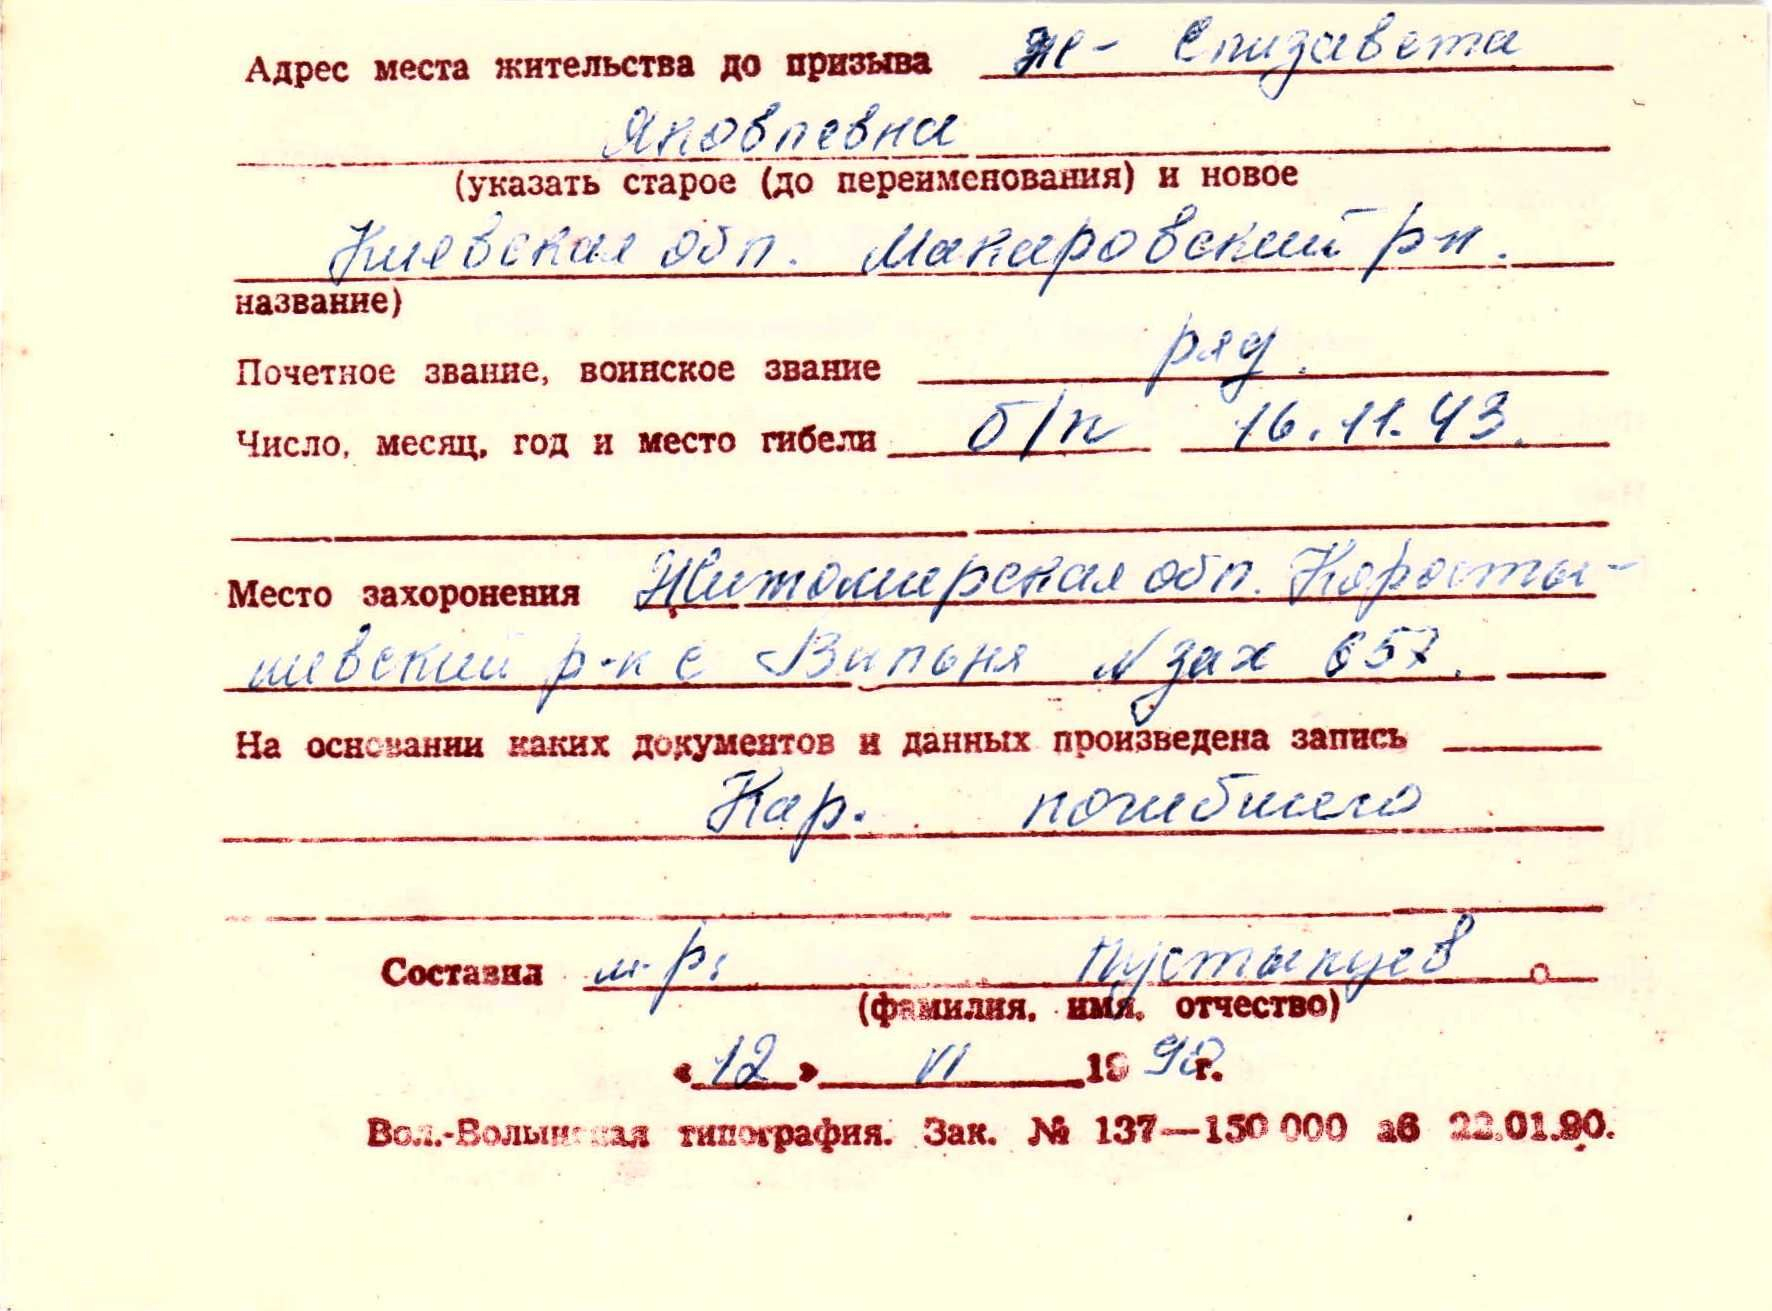 Адрес места жительства до призыва ж- Елизавета
Яковлевна
(указать старое (до переименования) и новое
Киевская обл. Макаровский р-н.
название)
Почетное звание, воинское звание ряд.
Число, месяц, год и место гибели б/п 16.11.43.
Место захоронения Житомирская обл. Коросты-
шевский р-н с Вильня N зах 657.
На основании каких документов и данных произведена запись
Кар. погибшего
Составил м-р: Пустынцев
(фамилия, имя, отчество)
«12» VI 1990 г.
Вол.-Волынская типография. Зак. № 137—150 000 аб 22.01.90.